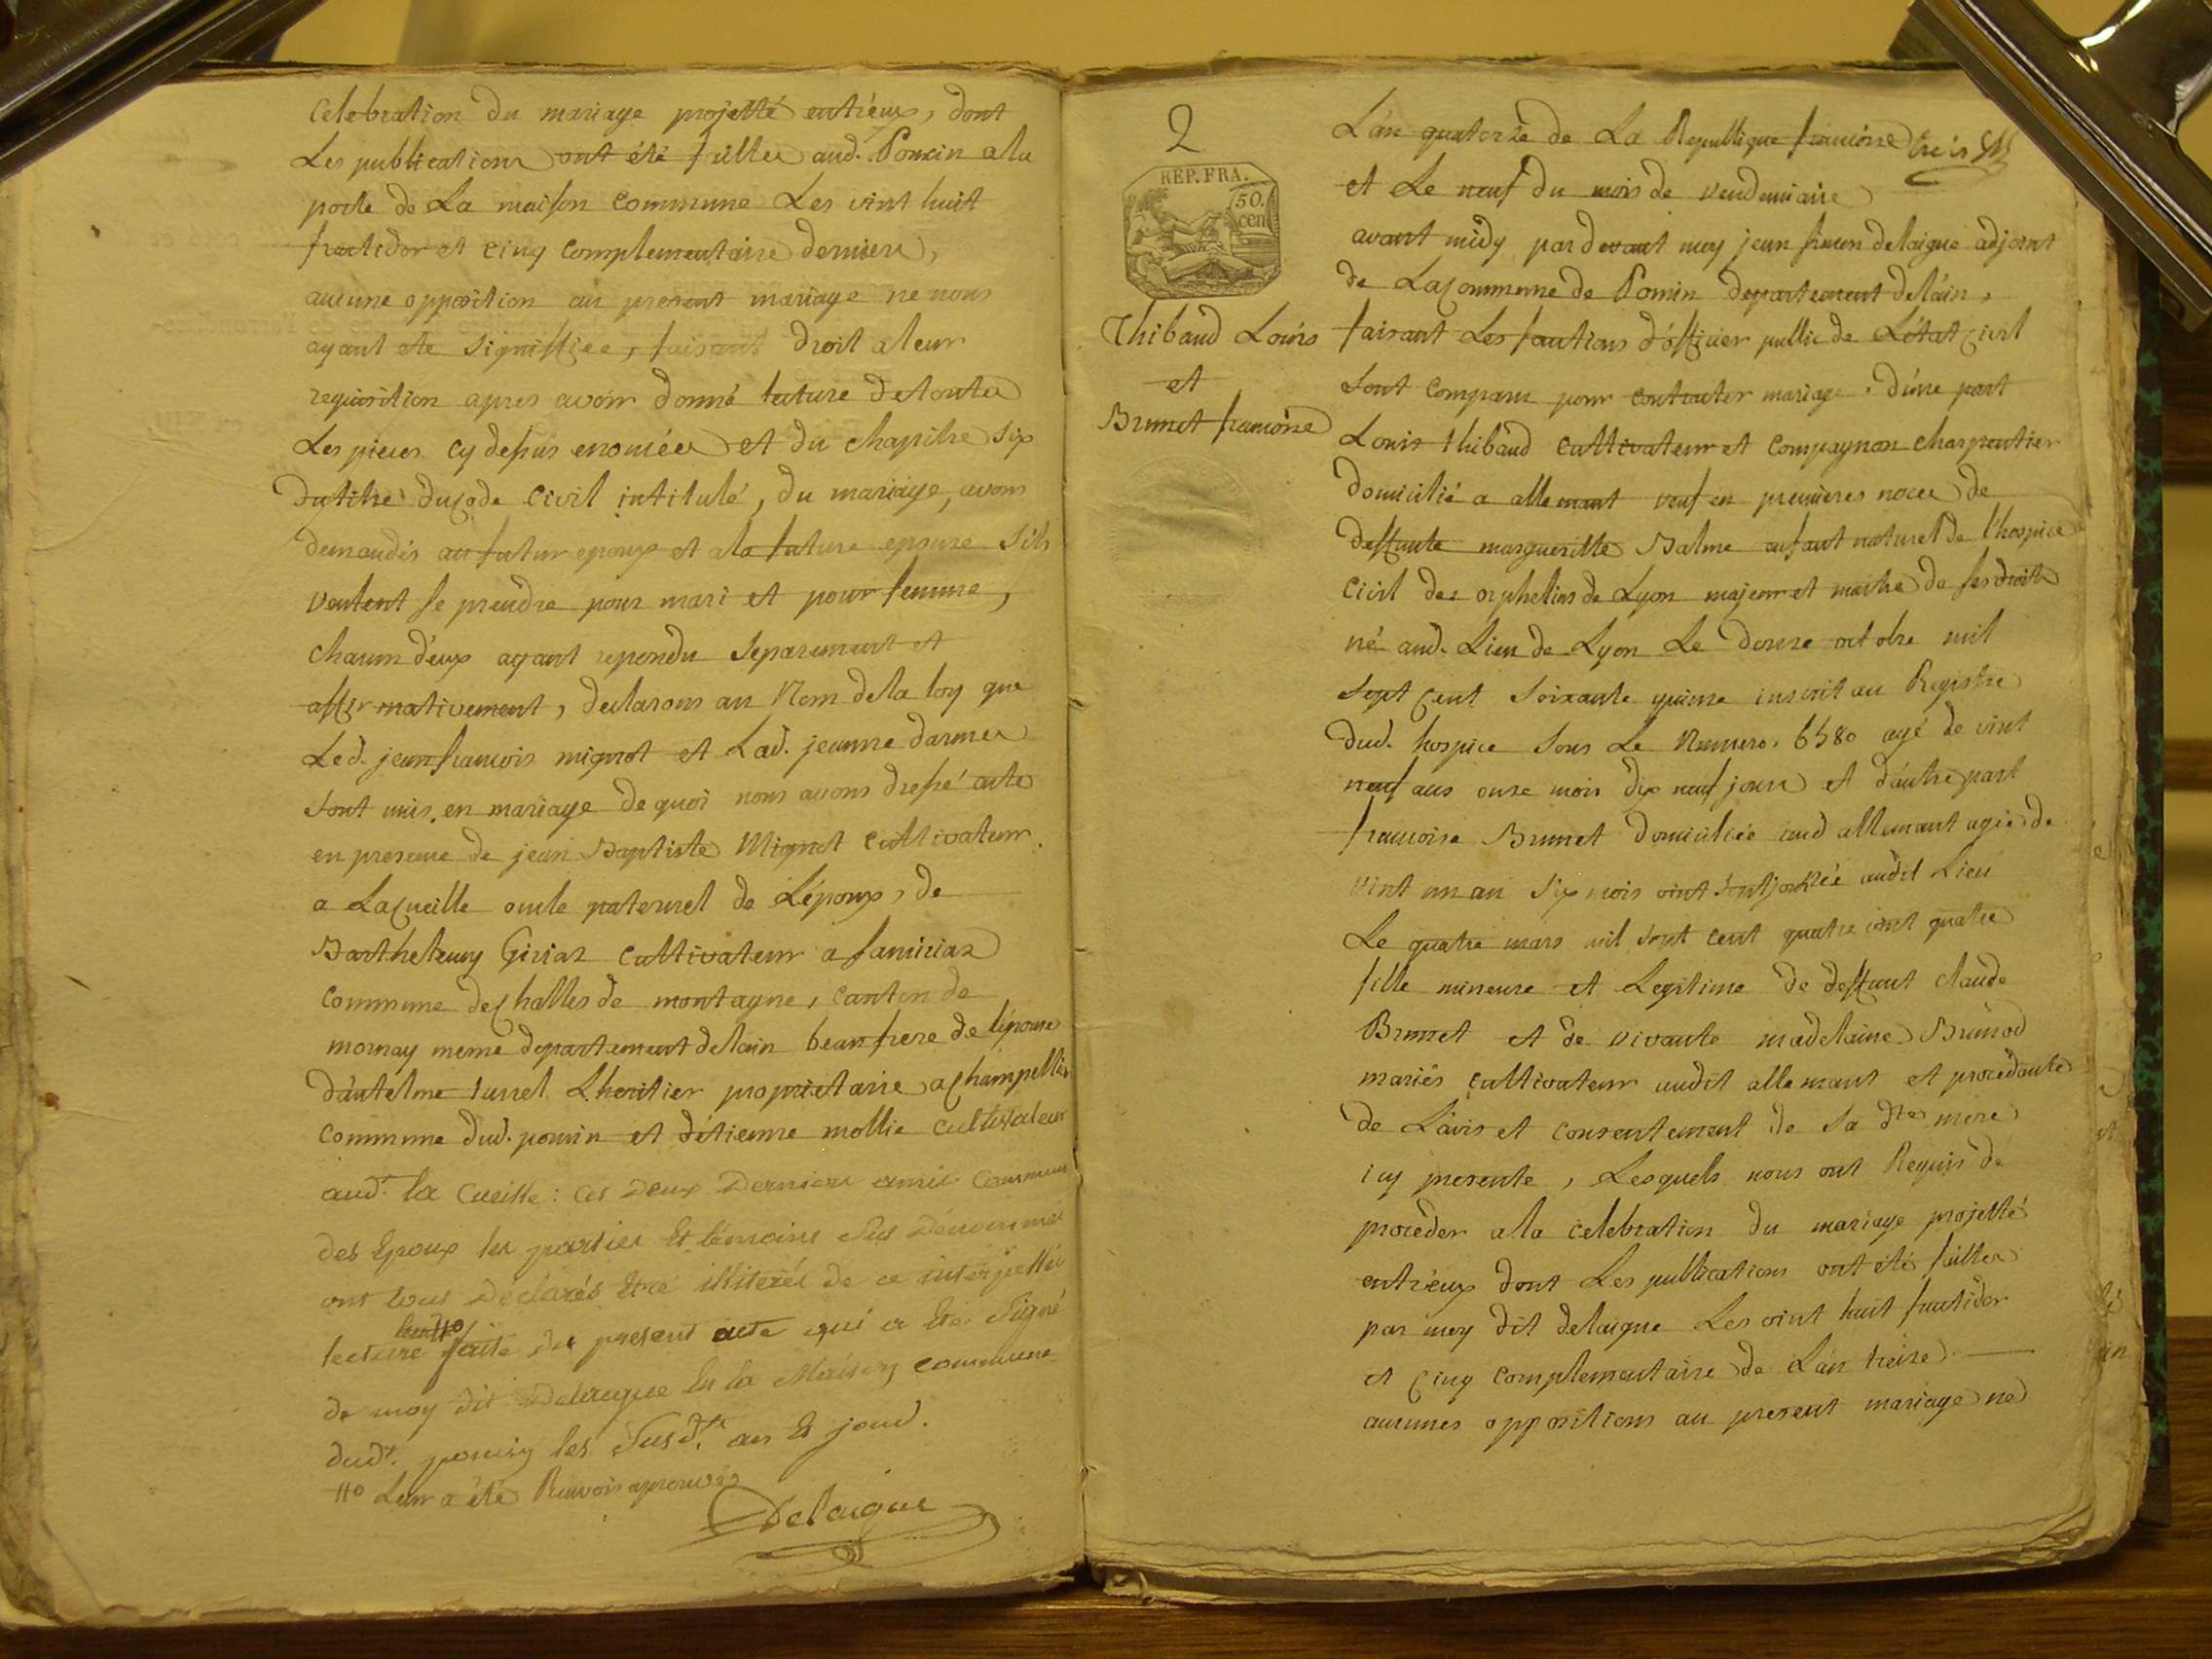 Celebration du mariage projetté entr'eux, dont
Les publications ont été faittes aud. Poncin a la
porte de La maison Commune Les vint huit
fructidor et cinq Complementaire derniers,
aucune opposition au present mariage ne nous
ayant ete signiffiée, faisant droit a leur
requisition apres avoir donné lecture de toutes
Les pieces cy dessus enoncées et du chapitre six
du titre du code Civil intitulé, du mariage, avons
demandés au futur epoux et a la future epouse s'ils
veulent se prendre pour mari et pour femme,
chacun d'eux ayant repondu separement et
affirmativement, declarons au Nom de la loy que
Led. jean francois mignot et Lad. jeanne darmes
sont unis en mariage de quoi nous avons dressé acte
en presence de jean Baptiste Mignot cultivateur
a La Cueille oncle paternel de L'époux, de
Barthelemy Giriat cultivateur a
Commune de challes de montagne, canton de
mornay meme departement de lain beau frere de l'épouse
d'antelme turrel Lheritier proprietaire a champeillin
commune dud. poncin et d'étienne mollie cultivateur
aud.t la Cueille: ces deux derniers amis communs
des Epoux les parties Et témoins sus denommés
ont tous déclarés Etre illiterés de ce interpellés
lecture faite du present acte qui a Eté signé
de moy dit Delaigue En la Maison commune
dud.t poncin les susd.ts an Et jour.
Leur a été Renvois aprouvés
Delaigue
2
REP. FRA.
50.
cen
Thibaud Louis
et
Brunet francoise
L'an quatorze de La Republique francoise
et Le neuf du mois de vendemiaire
avant midy par devant moy jean francois delaigue adjoint
de La Commune de Poncin departement de l'ain,
faisant Les fonctions d'officier public de L'état Civil
sont comparu pour contracter mariage. d'une part
Louis thibaud cultivateur et compagnon charpentier
domicilié a allemant veuf en premieres noces de
deffunte margueritte Balme enfant naturel de l'hospice
Civil des orphelins de Lyon majeur et maitre de ses droits
né aud. Lieu de Lyon Le douze octobre mil
sept cent soixante quinze inscrit au Registre
dud. hospice sous Le Numero. 6580 agé de vint
neuf ans onze mois dix neuf jours et d'autre part
francoise Brunet domiciliée aud allemant agée de
vint un an six mois vint sept jours née audit Lieu
Le quatre mars mil sept cent quatre vint quatre
fille mineure et Legitime de deffunt claude
Brunet et de vivante madelaine Brunod
mariés cultivateur audit allemant et procedante
de L'avis et consentement de sa d.te mere
icy presente, Lesquels nous ont Requis de
proceder a la celebration du mariage projetté
entr'eux dont Les publications ont été faittes
par moy dit delaigue Les vint huit fructidor
et cinq complementaire de L'an treize
aucunes oppositions au present mariage ne